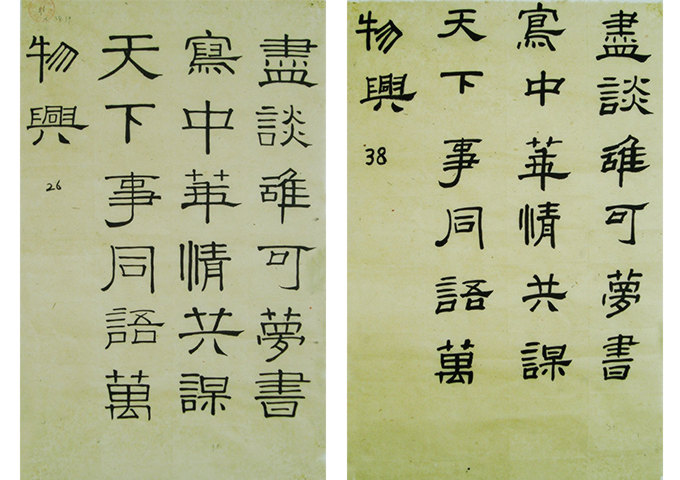 盡談雄可夢書
寫中華情共謀
天下事同語萬
物興
26
盡談雄可夢書
寫中華情共謀
天下事同語萬
物興
38